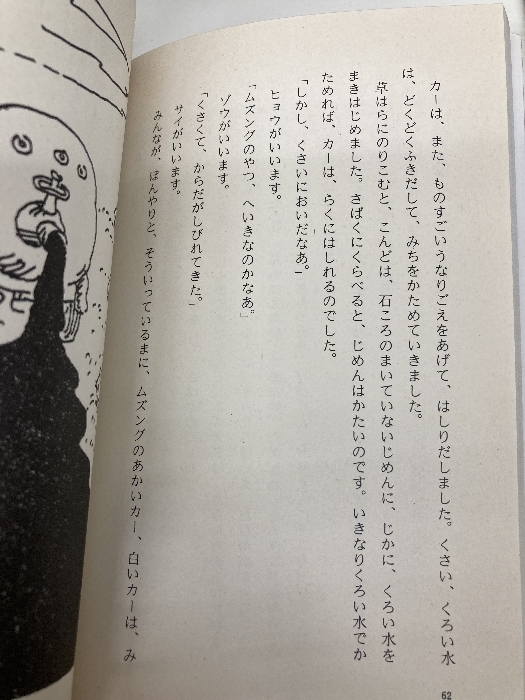 カーは、また、ものすごいうなりごえをあげて、はしりだしました。くさい、くろい水
は、どくどくふきだして、みちをかためていきました。
草はらにのりこむと、こんどは、石ころのまいていないじめんに、じかに、くろい水を
まきはじめました。さばくにくらべると、じめんはかたいのです。いきなりくろい水でか
ためれば、カーは、らくにはしれるのでした。
「しかし、くさいにおいだなあ。」
ヒョウがいいます。
「ムズングのやつ、へいきなのかなあ。」
ゾウがいいます。
「くさくて、からだがしびれてきた。」
サイがいいます。
みんなが、ぼんやりと、そういっているまに、ムズングのあかいカー、白いカーは、み
62